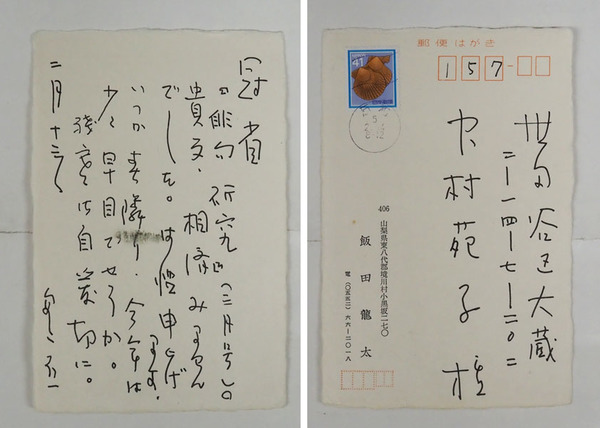 冠省
「俳句研究」(三月号)の
貴文、相済みません
でした。御礼申上げ
ます。
いつか春隣り、今年は
少々早目でせうか。
残寒御自愛切に。
二月十三日
郵便はがき
157
41
日本郵便
世田谷区大蔵
二ー一四ー七ー二〇二
中村苑子様
406
山梨県東八代郡境川村小黒坂二七〇
飯田龍太
電(〇五五二)六六ー二〇一八